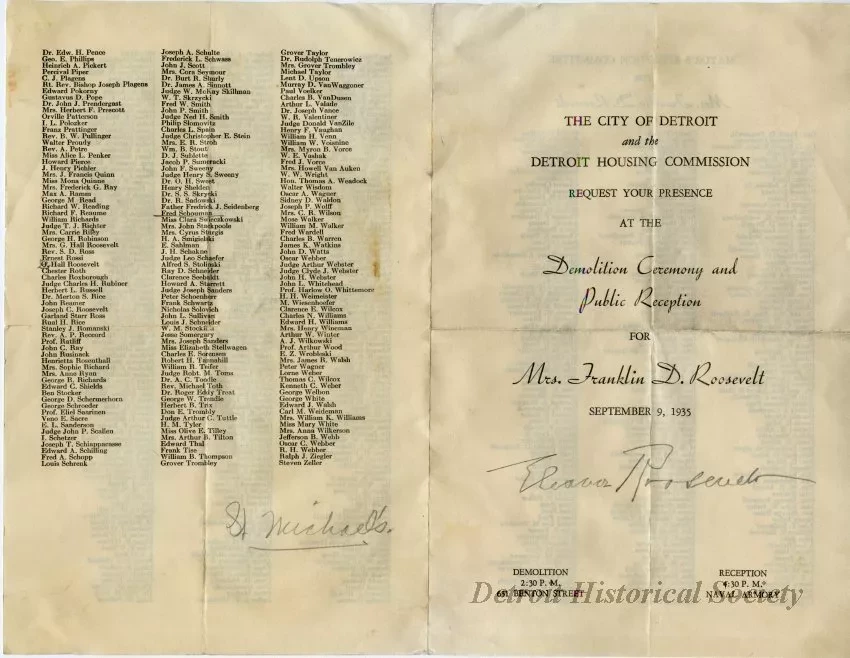 Dr. Edw. H. Pence
Geo. E. Phillips
Heinrich A. Pickert
Percival Piper
C. J. Plagens
Rt. Rev. Bishop Joseph Plagens
Edward Pokorny
Gustavus D. Pope
Dr. John J. Prendergast
Mrs. Herbert F. Prescott
Orville Patterson
I. L. Polozker
Franz Prattinger
Rev. B. W. Pullinger
Walter Proudy
Rev. A. Petre
Miss Alice L. Penker
Howard Pierce
J. Henry Pichler
Mrs. J. Francis Quinn
Miss Mona Quinne
Mrs. Frederick G. Ray
Max A. Raman
George M. Read
Richard W. Reading
Richard F. Reaume
William Richards
Judge T. J. Richter
Mrs. Carrie Riley
George H. Robinson
Mrs. G. Hall Roosevelt
Rev. S. D. Ross
Ernest Rossi
Hall Roosevelt
Chester Roth
Charles Roxborough
Judge Charles H. Rubiner
Herbert L. Russell
Dr. Merton S. Rice
John Reamer
Joseph C. Roosevelt
Garland Sturr Ross
Ruel H. Rice
Stanley J. Romanski
Rev. A. P. Record
Prof. Ratliff
John C. Ray
John Rusinack
Henrietta Rosenthall
Mrs. Sophie Richard
Mrs. Anne Ryan
George B. Richards
Edward C. Shields
Ben Stocker
George D. Schermerhorn
George Schroeder
Prof. Eliel Saarinen
Veno E. Sacre
E. L. Sanderson
Judge John P. Scallen
J. Schetzer
Joseph T. Schiappacasse
Edward A. Schilling
Fred A. Schopp
Louis Schrenk
Joseph A. Schulte
Frederick L. Schwass
John J. Scott
Mrs. Cora Seymour
Dr. Burt R. Shurly
Dr. James A. Sinnott
Judge W. McKay Skillman
W. T. Skrzycki
Fred W. Smith
John P. Smith
Judge Ned H. Smith
Philip Slomovitz
Charles L. Spain
Judge Christopher E. Stein
Mrs. E. R. Stroh
Wm. B. Stout
D. J. Sublette
Jacob P. Sumeracki
John F. Sweeny
Judge Henry S. Sweeny
Dr. O. H. Sweet
Henry Shelden
Dr. S. S. Skrycki
Dr. R. Sadowski
Father Fredrick J. Seidenberg
Fred Schouman
Miss Clara Swieczkowski
Mrs. John Stackpoole
Mrs. Cyrus Sturgis
H. A. Smigielski
E. Sahlman
J. H. Schokne
Judge Leo Schaefer
Alfred S. Stolinski
Ray D. Schneider
Clarence Seebaldt
Howard A. Starrett
Judge Joseph Sanders
Peter Schoenherr
Frank Schwartz
Nicholas Solovich
John L. Sullivan
Louis J. Schneider
W. M. Stockil
Jesse Somergary
Mrs. Joseph Sanders
Miss Elizabeth Stellwagen
Charles E. Sorensen
Robert H. Tannahill
William R. Teifer
Judge Robt. M. Toms
Dr. A. C. Toodle
Rev. Michael Toth
Dr. Roger Eddy Treat
George W. Trendle
Herbert B. Trix
Don E. Trombly
Judge Arthur C. Tuttle
H. M. Tyler
Miss Olive E. Tilley
Mrs. Arthur B. Tilton
Edward Thal
Frank Tise
William B. Thompson
Grover Trombley
Grover Taylor
Dr. Rudolph Tenerowicz
Mrs. Grover Trombley
Michael Taylor
Lent D. Upson
Murray D. VanWaggoner
Paul Voelker
Charles B. VanDusen
Arthur L. Valade
Dr. Joseph Vance
W. R. Valentiner
Judge Donald VanZile
Henry F. Vaughan
William H. Venn
William W. Voisnine
Mrs. Myron B. Vorce
W. E. Vashak
Fred J. Vores
Mrs. Howell Van Auken
W. W. Wright
Hon. Thomas A. Weadock
Walter Wisdom
Oscar A. Wagner
Sidney D. Waldon
Joseph P. Wolff
Mrs. C. R. Wilson
Mose Walker
William M. Walker
Fred Wardell
Charles B. Warren
James K. Watkins
John D. Watts
Oscar Webber
Judge Arthur Webster
Judge Clyde J. Webster
John H. Webster
John L. Whitehead
Prof. Harlow O. Whittemore
H. H. Weimeister
M. Wiesenhoefer
Clarence E. Wilcox
Charles N. Williams
Edward H. Williams
Mrs. Henry Wineman
Arthur W. Winter
A. J. Wilkowski
Prof. Arthur Wood
E. Z. Wroblenki
Mrs. James R. Walsh
Peter Wagner
Lorne Weber
Thomas C. Wilcox
Kenneth C. Weber
George Welhon
George White
Edward J. Walsh
Carl M. Weideman
Mrs. William K. Williams
Miss Mary White
Mrs. Anna Wilkerson
Jefferson B. Webb
Oscar C. Webber
R. H. Webber
Ralph J. Ziegler
Steven Zeller
St Michael's.
THE CITY OF DETROIT
and the
DETROIT HOUSING COMMISSION
REQUEST YOUR PRESENCE
AT THE
Demolition Ceremony and
Public Reception
FOR
Mrs. Franklin D. Roosevelt
SEPTEMBER 9, 1935
Eleanor Roosevelt
DEMOLITION
2:30 P. M.
651 BENTON STREET
RECEPTION
4:30 P. M.
NAVAL ARMORY
Detroit Historical Society